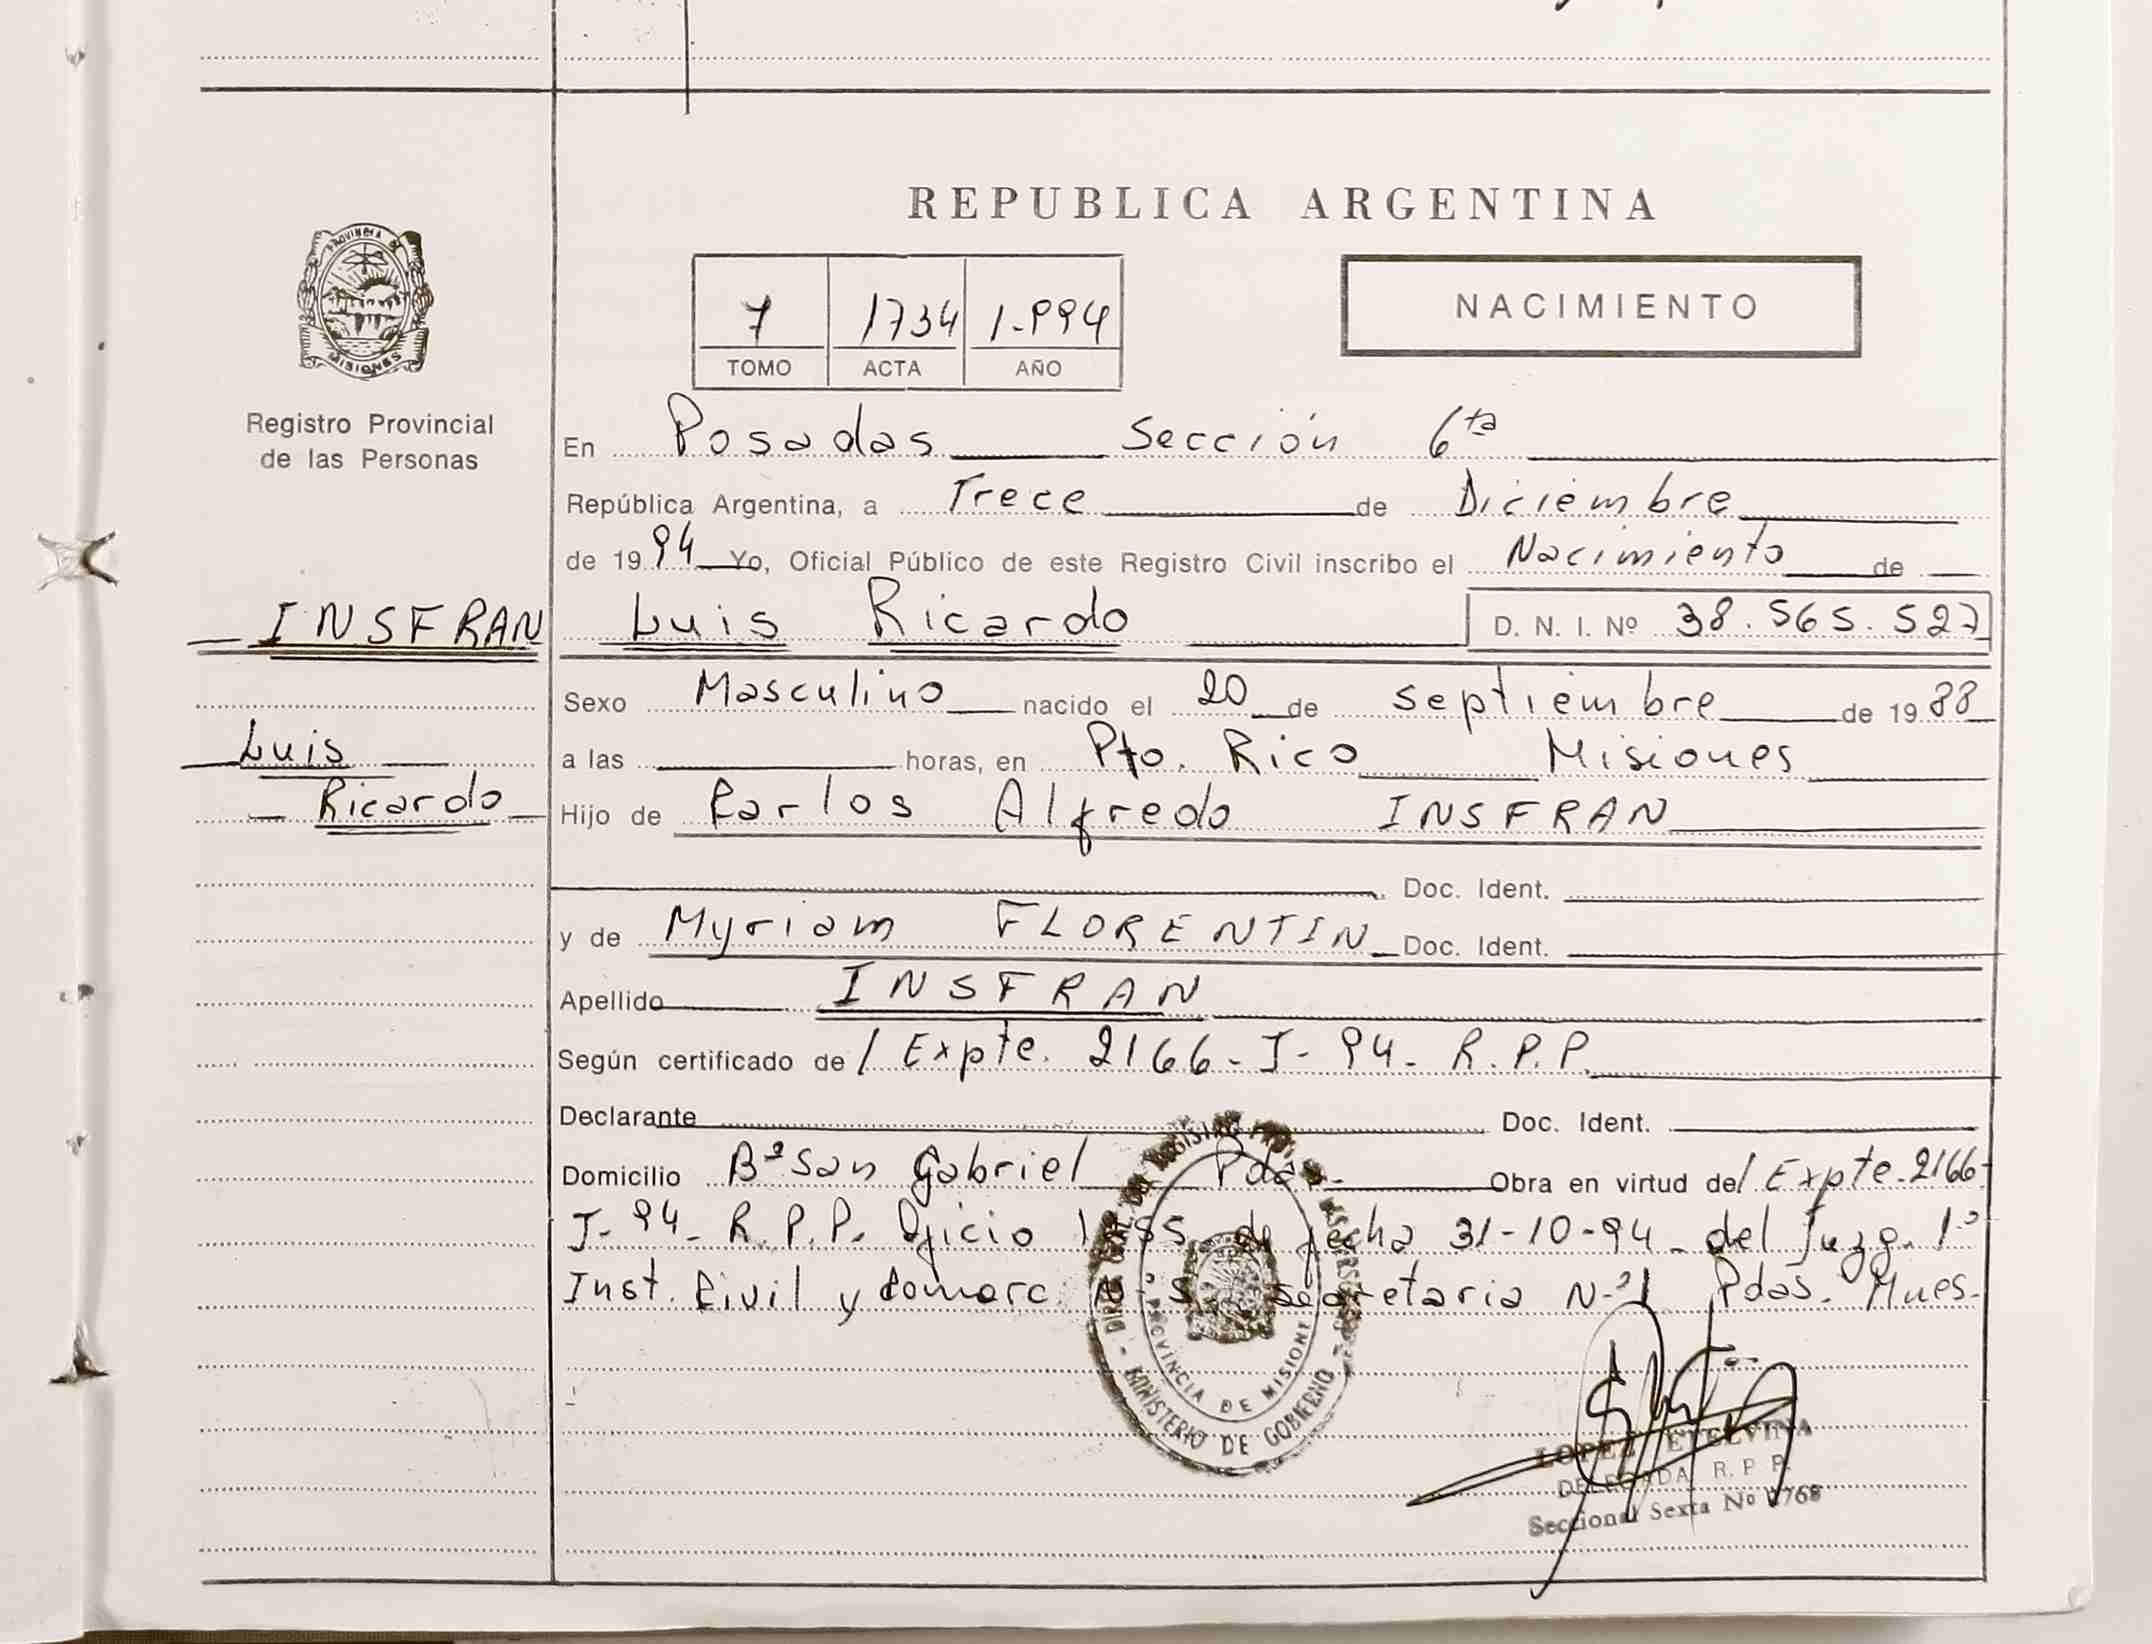 REPUBLICA ARGENTINA
PROVINCIA DE
MISIONES
Registro Provincial
de las Personas
7 1734 1.994
TOMO ACTA AÑO
NACIMIENTO
En Posadas Sección 6ta
República Argentina, a Trece de Diciembre
de 1994 Yo, Oficial Público de este Registro Civil inscribo el Nacimiento de
INSFRAN Luis Ricardo D. N. I. Nº 38.565.527
Sexo Masculino nacido el 20 de septiembre de 1988
Luis
a las horas, en Pto. Rico Misiones
Ricardo
Hijo de Carlos Alfredo INSFRAN
Doc. Ident.
y de Myriam FLORENTIN Doc. Ident.
Apellido INSFRAN
Según certificado de/ Expte. 2166-I-94-R.P.P.
Declarante Doc. Ident.
Domicilio Bº San Gabriel Pdas. Obra en virtud de/ Expte. 2166-
I-94-R.P.P. Oficio de fecha 31-10-94- del Juzg. 1º
Inst. Civil y Comerc. Secretaria Nº 1 Pdas. Mnes.
PROVINCIA DE MISIONES
MINISTERIO DE GOBIERNO
LOPEZ ETELVINA
DELEGADA R. P. P.
Seccional Sexta Nº